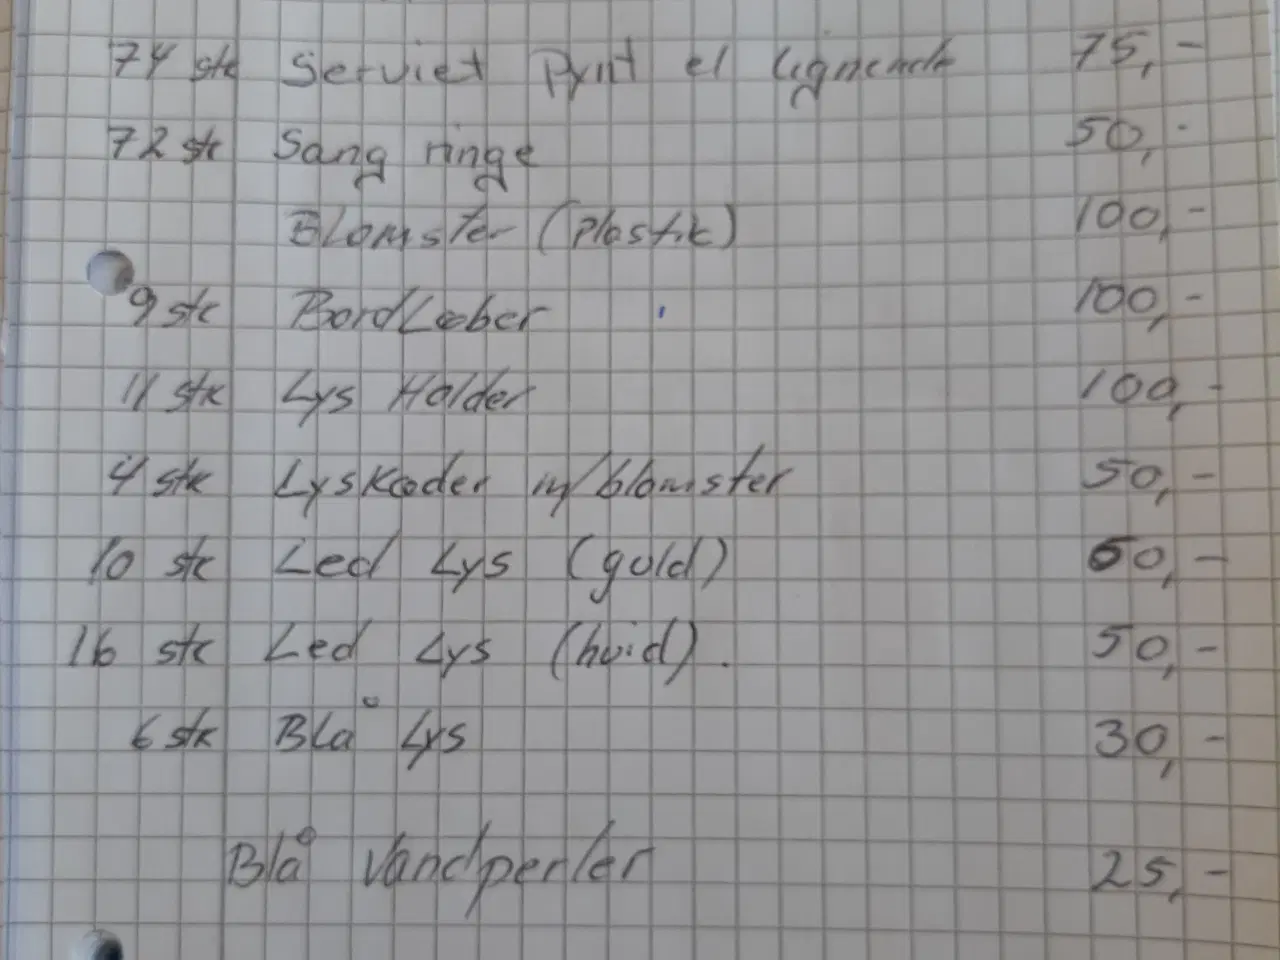 74 stk Serviet Pynt el lignende 75,-
72 stk Sang ringe 50,-
Blomster (plastik) 100,-
9 stk Bordløber 100,-
11 stk Lys Holder 100,-
4 stk Lys m/blomster 50,-
10 stk Led Lys (guld) 50,-
16 stk Led Lys (hvid). 50,-
6 stk Blå Lys 30,-
Blå Vandperler 25,-